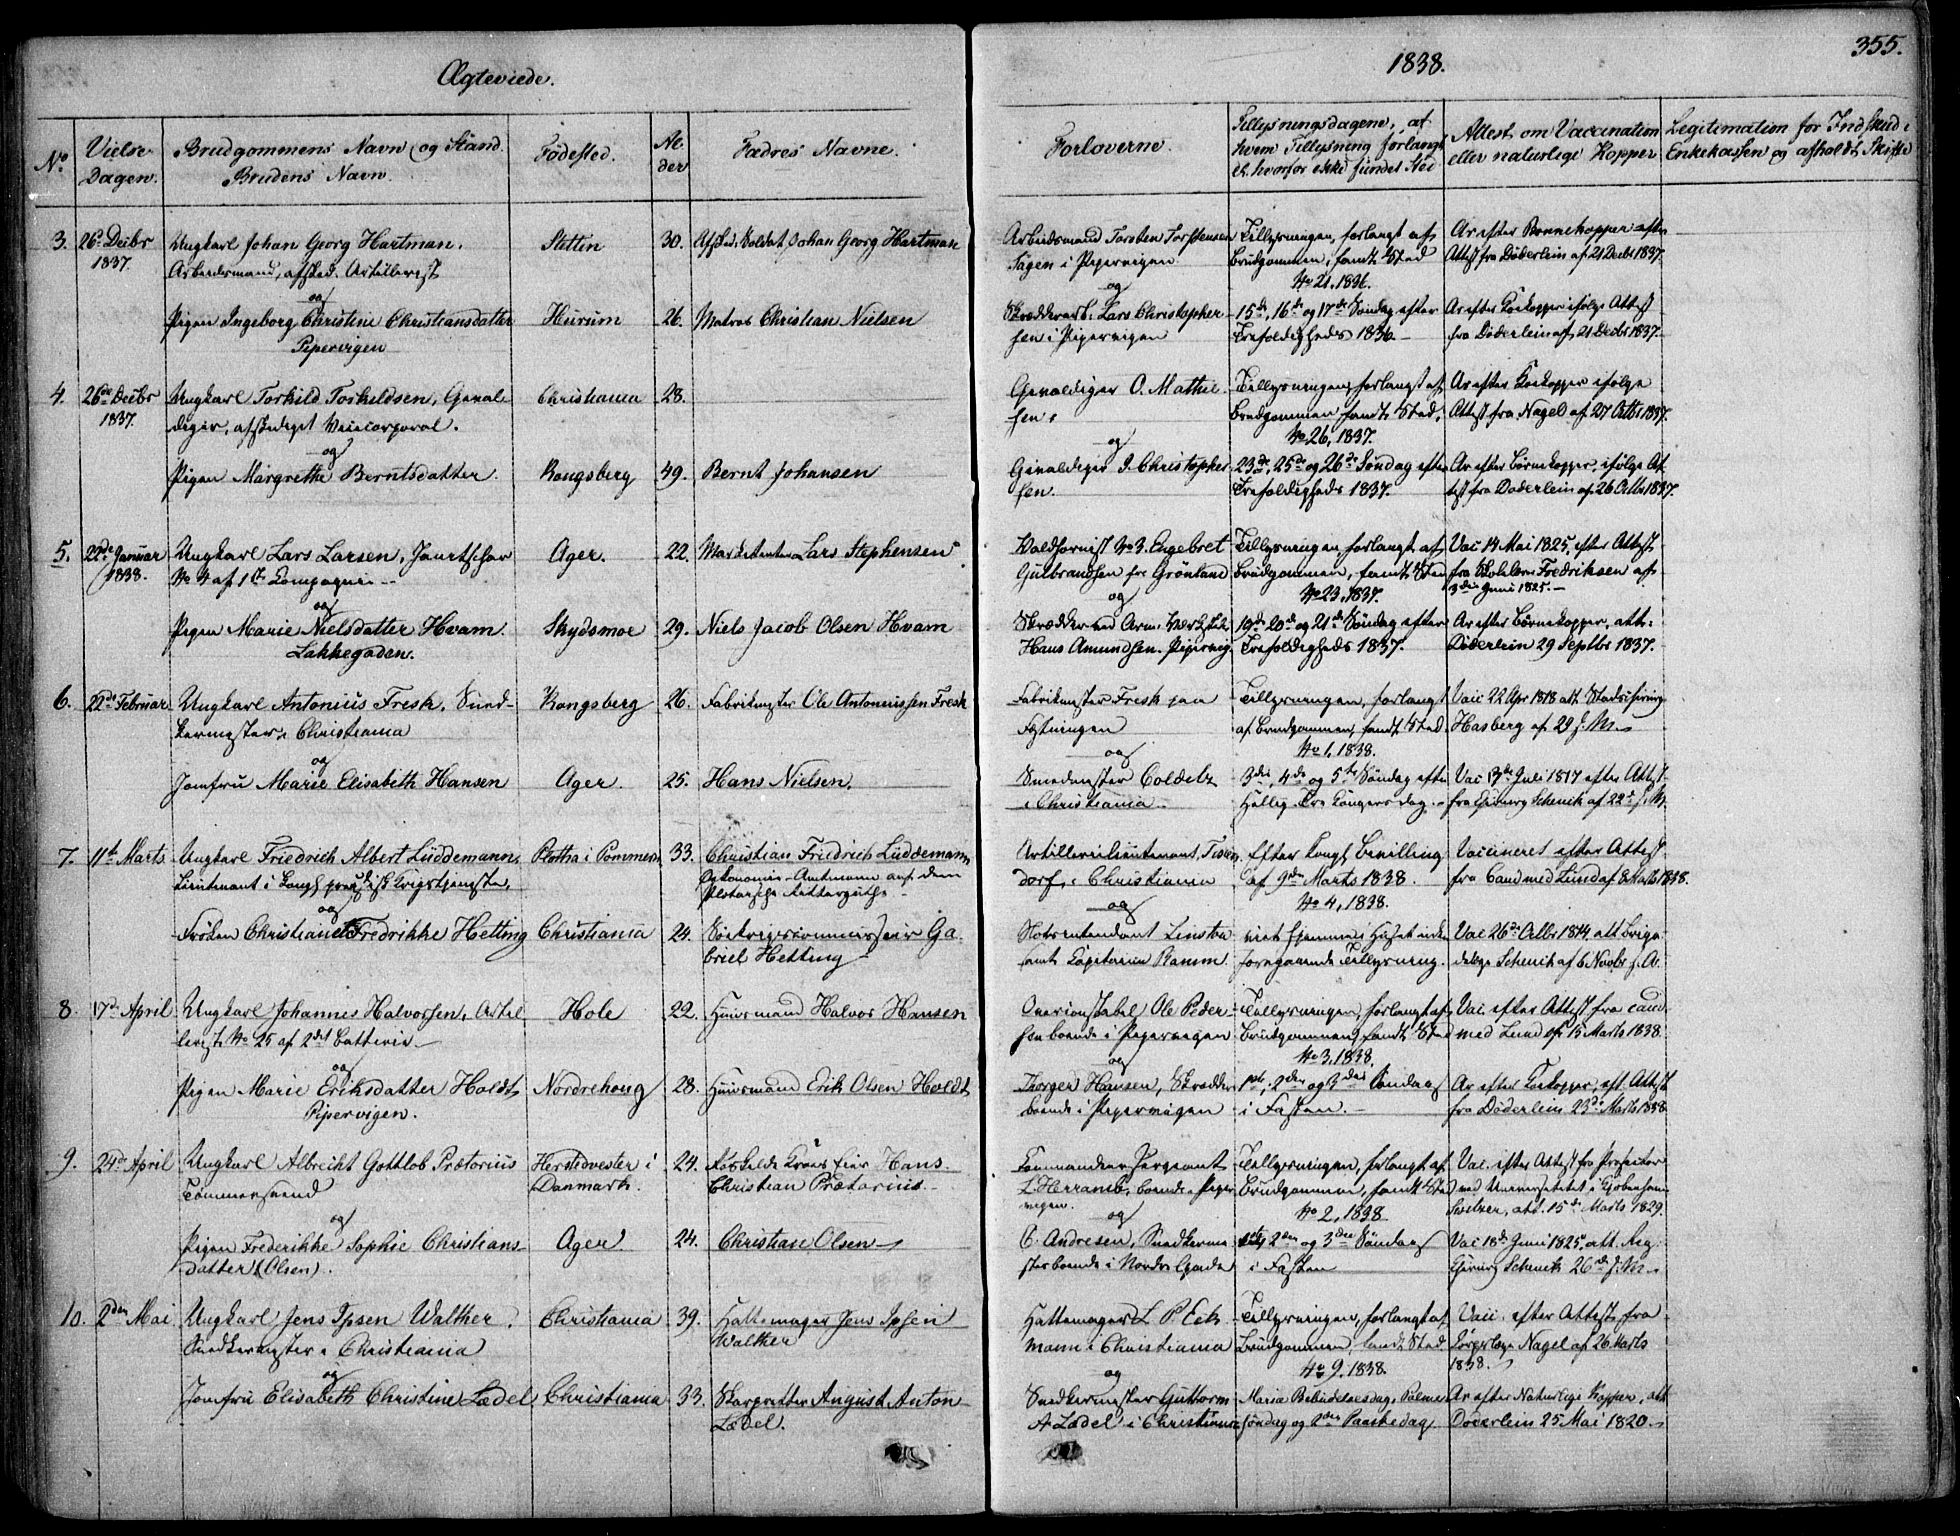 Ægteviede.
1838.
355.
No
Vielse Dagen.
Brudgommens Navn og Stand. Brudens Navn.
Fødested.
Al der
Fædres Navne.
Forloverne.
Tillysningsdagene, af hvem Tillysning forlangt el. hvorfor ikke fundet Sted
Attest om Vaccination eller naturlige Kopper
Legitimation for Indskud i Enkekassen og afholdt Skifte
3. 26de Decbr 1837. Ungkarl Johan Georg Hartman.
Arbeidsmand, afsked. Artillerist
Stettin 30. Afsked. Soldat Johan Georg Hartman
og
Pigen Ingeborg Christine Christiansdatter
Pipervigen
Hurum 26. Matros Christian Nielsen
Arbeidsmand Torsten Torstensen
i Pipervigen
og
Lars Christopher-
sen i Pipervigen
Tillysningen, forlangt af
Brudgommen, fandt Sted
No 21, 1836.
15de, 16de og 17de Søndag efter
Trefoldigheds 1836.
Ar efter Børnekopper efter
Attest fra Døderlein af 21 Decbr 1837.
Ar efter Koekopper ifølge Attest
fra Døderlein af 21 Decbr 1837.
4. 26de Decbr 1837. Ungkarl Torkild Torkildsen, Geval-
diger, afskediget Vicecorporal.
Christiania 28.
og
Pigen Margrethe Berntsdatter.
Kongsberg 49. Bernt Johansen
Gevaldiger O. Mathie-
sen.
og
Gevaldiger J. Christopher-
sen.
Tillysningen, forlangt af
Brudgommen fandt Sted,
No 26, 1837.
23de, 25de og 26de Søndag efter
Trefoldigheds 1837.
Ar efter Koekopper ifølge
Attest fra Nagel af 27 Octbr 1837.
Ar efter Børnekopper, ifølge At-
test fra Døderlein af 26 Octbr 1837.
5. 22de Januar 1838. Ungkarl Lars Larsen, Jauritschar
No 4 af 1ste Compagnie
Ager. 22. Marketenter Lars Stephensen
og
Pigen Marie Nielsdatter Hvam.
Lakkegaden.
Skydsmoe 29. Niels Jacob Olsen Hvam
Waldhornist No 3. Engebret
Gulbrandsen for Grønland
og
Hans Amundsen. Pipervig.
Tillysningen forlangt af
Brudgommen, fandt Sted
No 23, 1837.
19de 20de og 21de Søndag efter
Trefoldigheds 1837.
Vac. 14 Mai 1825, efter Attest
fra Skolelærer Fredriksen af
3die Juni 1825.
Ar efter Børnekopper, att.
Døderlein 29 Septbr 1837.
6. 22de Februar Ungkarl Antonius Fresk, Sned-
kermester i Christiania
Kongsberg 26. Fabrikmester Ole Antoniussen Fresk
og
Jomfru Marie Elisabeth Hansen
Ager. 25. Hans Nielsen.
Fabrikmester Fresk paa
Fæstningen
og
Smedmester Coldelz
i Christiania
Tillysningen, forlangt
af Brudgommen, fandt Sted.
No 1, 1838.
3die, 4de og 5te Søndag efter
Hellig Tre Kongers dag.
Vac. 22 Apr 1818 att. Stadschirurg
Hasberg af 29 s. M.
Vac 13de Juli 1817 efter Attest
fra Chirurg Schenck af 22de s. M.
7. 11te Marts Ungkarl Friedrich Albert Luddemann,
Lieutenant i Kongl. preussisk Krigstjeneste.
Plotha i Pommern 33. Christian Friedrich Luddemann
Oekonomie-Amtmann auf dem
Plotaische Ritterguthe
og
Frøken Christiane Fredrikke Hetting
Christiania 24. Søekrigscommissair Ga-
briel Hetting
Artillerielieutenant
dorf i Christiania
og
Slotsintendant Linstow
samt Capitain Ramm.
Efter Kongl. Bevilling
af 9de Marts 1838.
No 4, 1838.
viet hjemme i Huset uden
foregaaende Tillysning.
Vaccineret efter Attest
fra Cand med Lund af 8 Marts 1838.
Vac 26de Octbr 1814, att. Briga-
delæge Schenck af 6 Novbr s. A.
8. 17de April Ungkarl Johannes Halvorsen, Artil-
lerist No 25 af 2det Batterie
Hole 22. Huusmand Halvor Hansen
og
Pigen Marie Eriksdatter Holdt
Pipervigen.
Nordrehoug 28. Huusmand Erik Olsen Holdt
Ole Peder-
sen boende i Pipervigen
og
Thorger Hansen, Skrædder
boende i Pipervigen
Tillysningen, forlangt af
Brudgommen, fandt Sted
No 3, 1838
1ste, 2den og 3die Søndag
i Fasten.
Vac. efter Attest fra cand
med Lund af 15 Marts 1838.
Ar efter Koekopper, eft. Attest
fra Døderlein 23de Marts 1838
9. 24de April Ungkarl Albrecht Gottlob Prætorius
Tømmersvend
Herstedvester i
Danmark.
24. Roeskilde Kroes Eier Hans
Christian Prætorius
og
Pigen Frederikke Sophie Christians-
datter (Olsen).
Ager. 24. Christian Olsen
Commandeer Sergeant
L. Herramb, boende i Piper-
vigen.
og
C. Andresen, Snedkerme-
ster boende i Nordre Gade
Tillysningen, forlangt af
Brudgommen, fandt Sted
No 2, 1838
1ste, 2den og 3die Søndag
i Fasten
Vac. efter Attest fra Prosector
ved Universitetet i Kjøbenhavn
Switzer, att. 15de Marts 1829.
Vac 18de Juni 1825, att. Reg.
Chirurg Schenck 26de s. M.
10. 2den Mai Ungkarl Jens Ipsen Walther.
Snedkermester i Christiania
Christiania 39. Hattemager Jens Ipsen
Walther
og
Jomfru Elisabeth Christine Lædel
Christiania 33. Skarpretter August Anton
Lædel.
Hattemager L P Eck-
mann i Christiania
og
Snedkermester Guttorm
A Lædel i Christiania
Tillysningen, forlangt af
Brudgommen, fandt Sted
No 9, 1838.
Maria Bebudelsesdag, Palme-
søndag og 2den Paaskedag
Vacc. efter Attest fra
Corpslæge Nagel af 26 Marts
1838.
Ar efter Naturlige Kopper, att.
Døderlein 25 Mai 1820